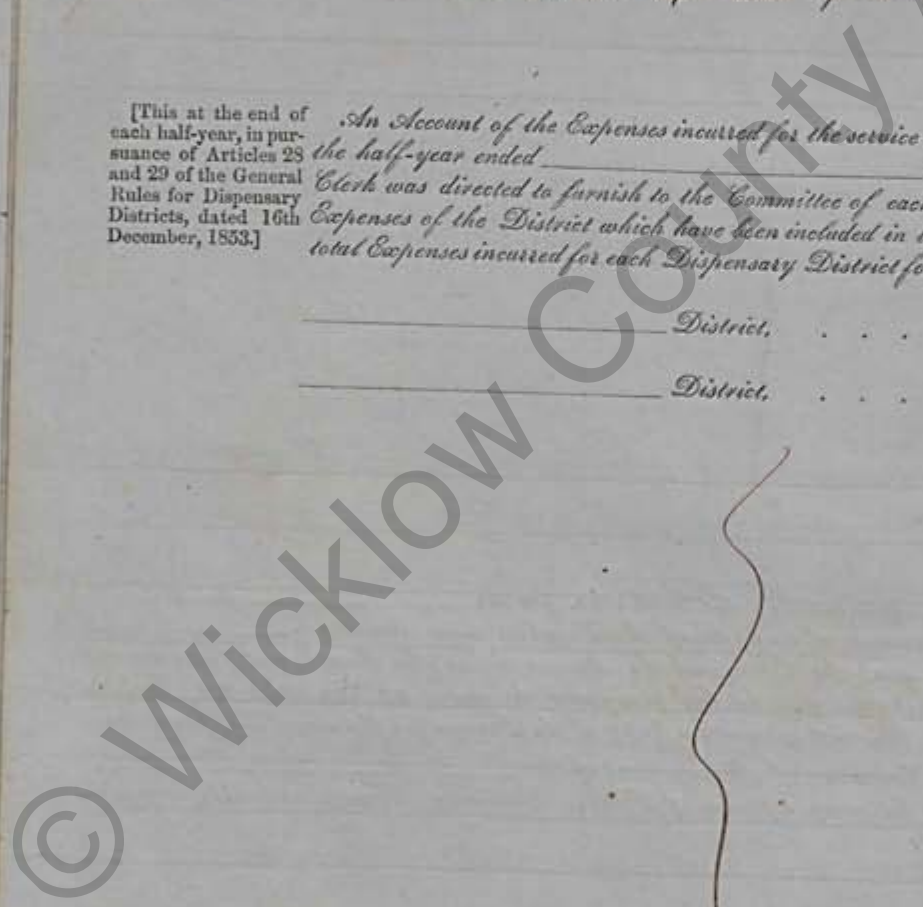 [This at the end of
each half-year, in pur-
suance of Articles 28
and 29 of the General
Rules for Dispensary
Districts, dated 16th
December, 1853.]
An Account of the Expenses incurred for the service
the half-year ended
Clerk was directed to furnish to the Committee of each
Expenses of the District which have been included in
total Expenses incurred for each Dispensary District fo
District. . . .
District. . . .
© Wicklow County